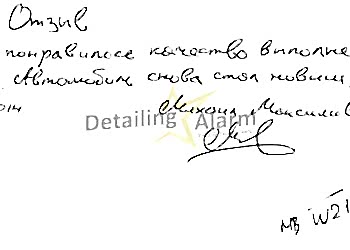 Отзыв
понравилось качество выполне
Автомобиль снова стал новым
Михаил Максимов
Detailing Alarm
MB W21